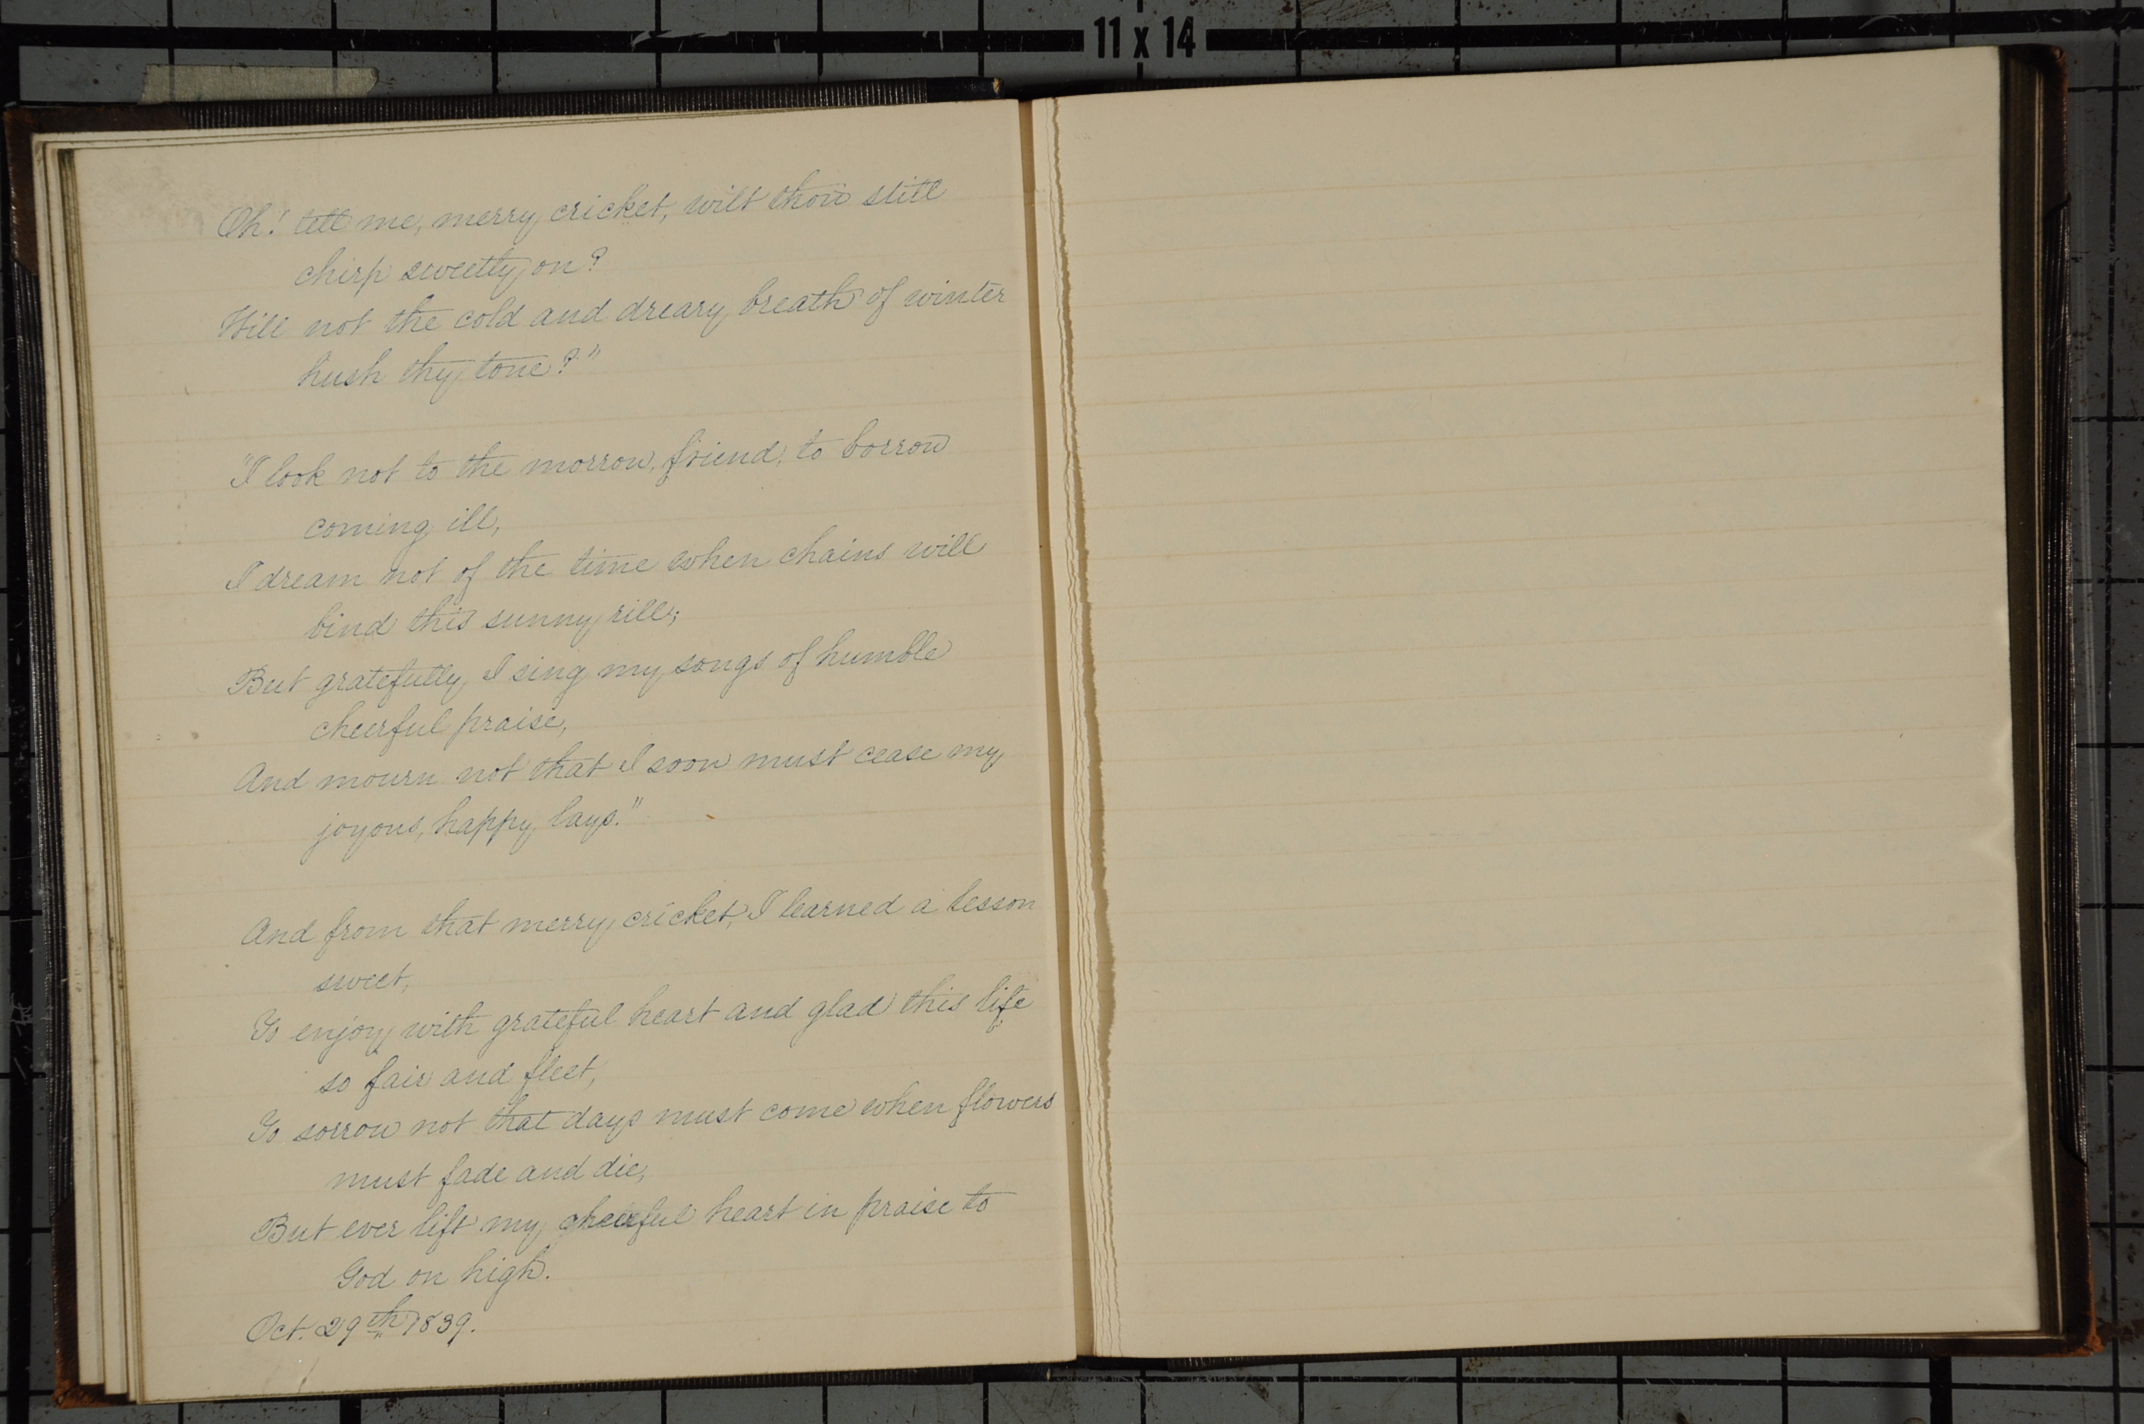 11 x 14
Oh! tell me, merry cricket, wilt thou still
chirp sweetly on?
Will not the cold and dreary breath of winter
hush thy tone?"
"I look not to the morrow, friend, to borrow
coming ill,
I dream not of the time when chains will
bind this sunny rill;
But gratefully I sing my songs of humble
cheerful praise,
And mourn not that I soon must cease my
joyous, happy lays."
And from that merry cricket, I learned a lesson
sweet,
To enjoy with grateful heart and glad this life
so fair and fleet,
To sorrow not that days must come when flowers
must fade and die,
But ever lift my cheerful heart in praise to
God on high.
Oct. 29th 1839.